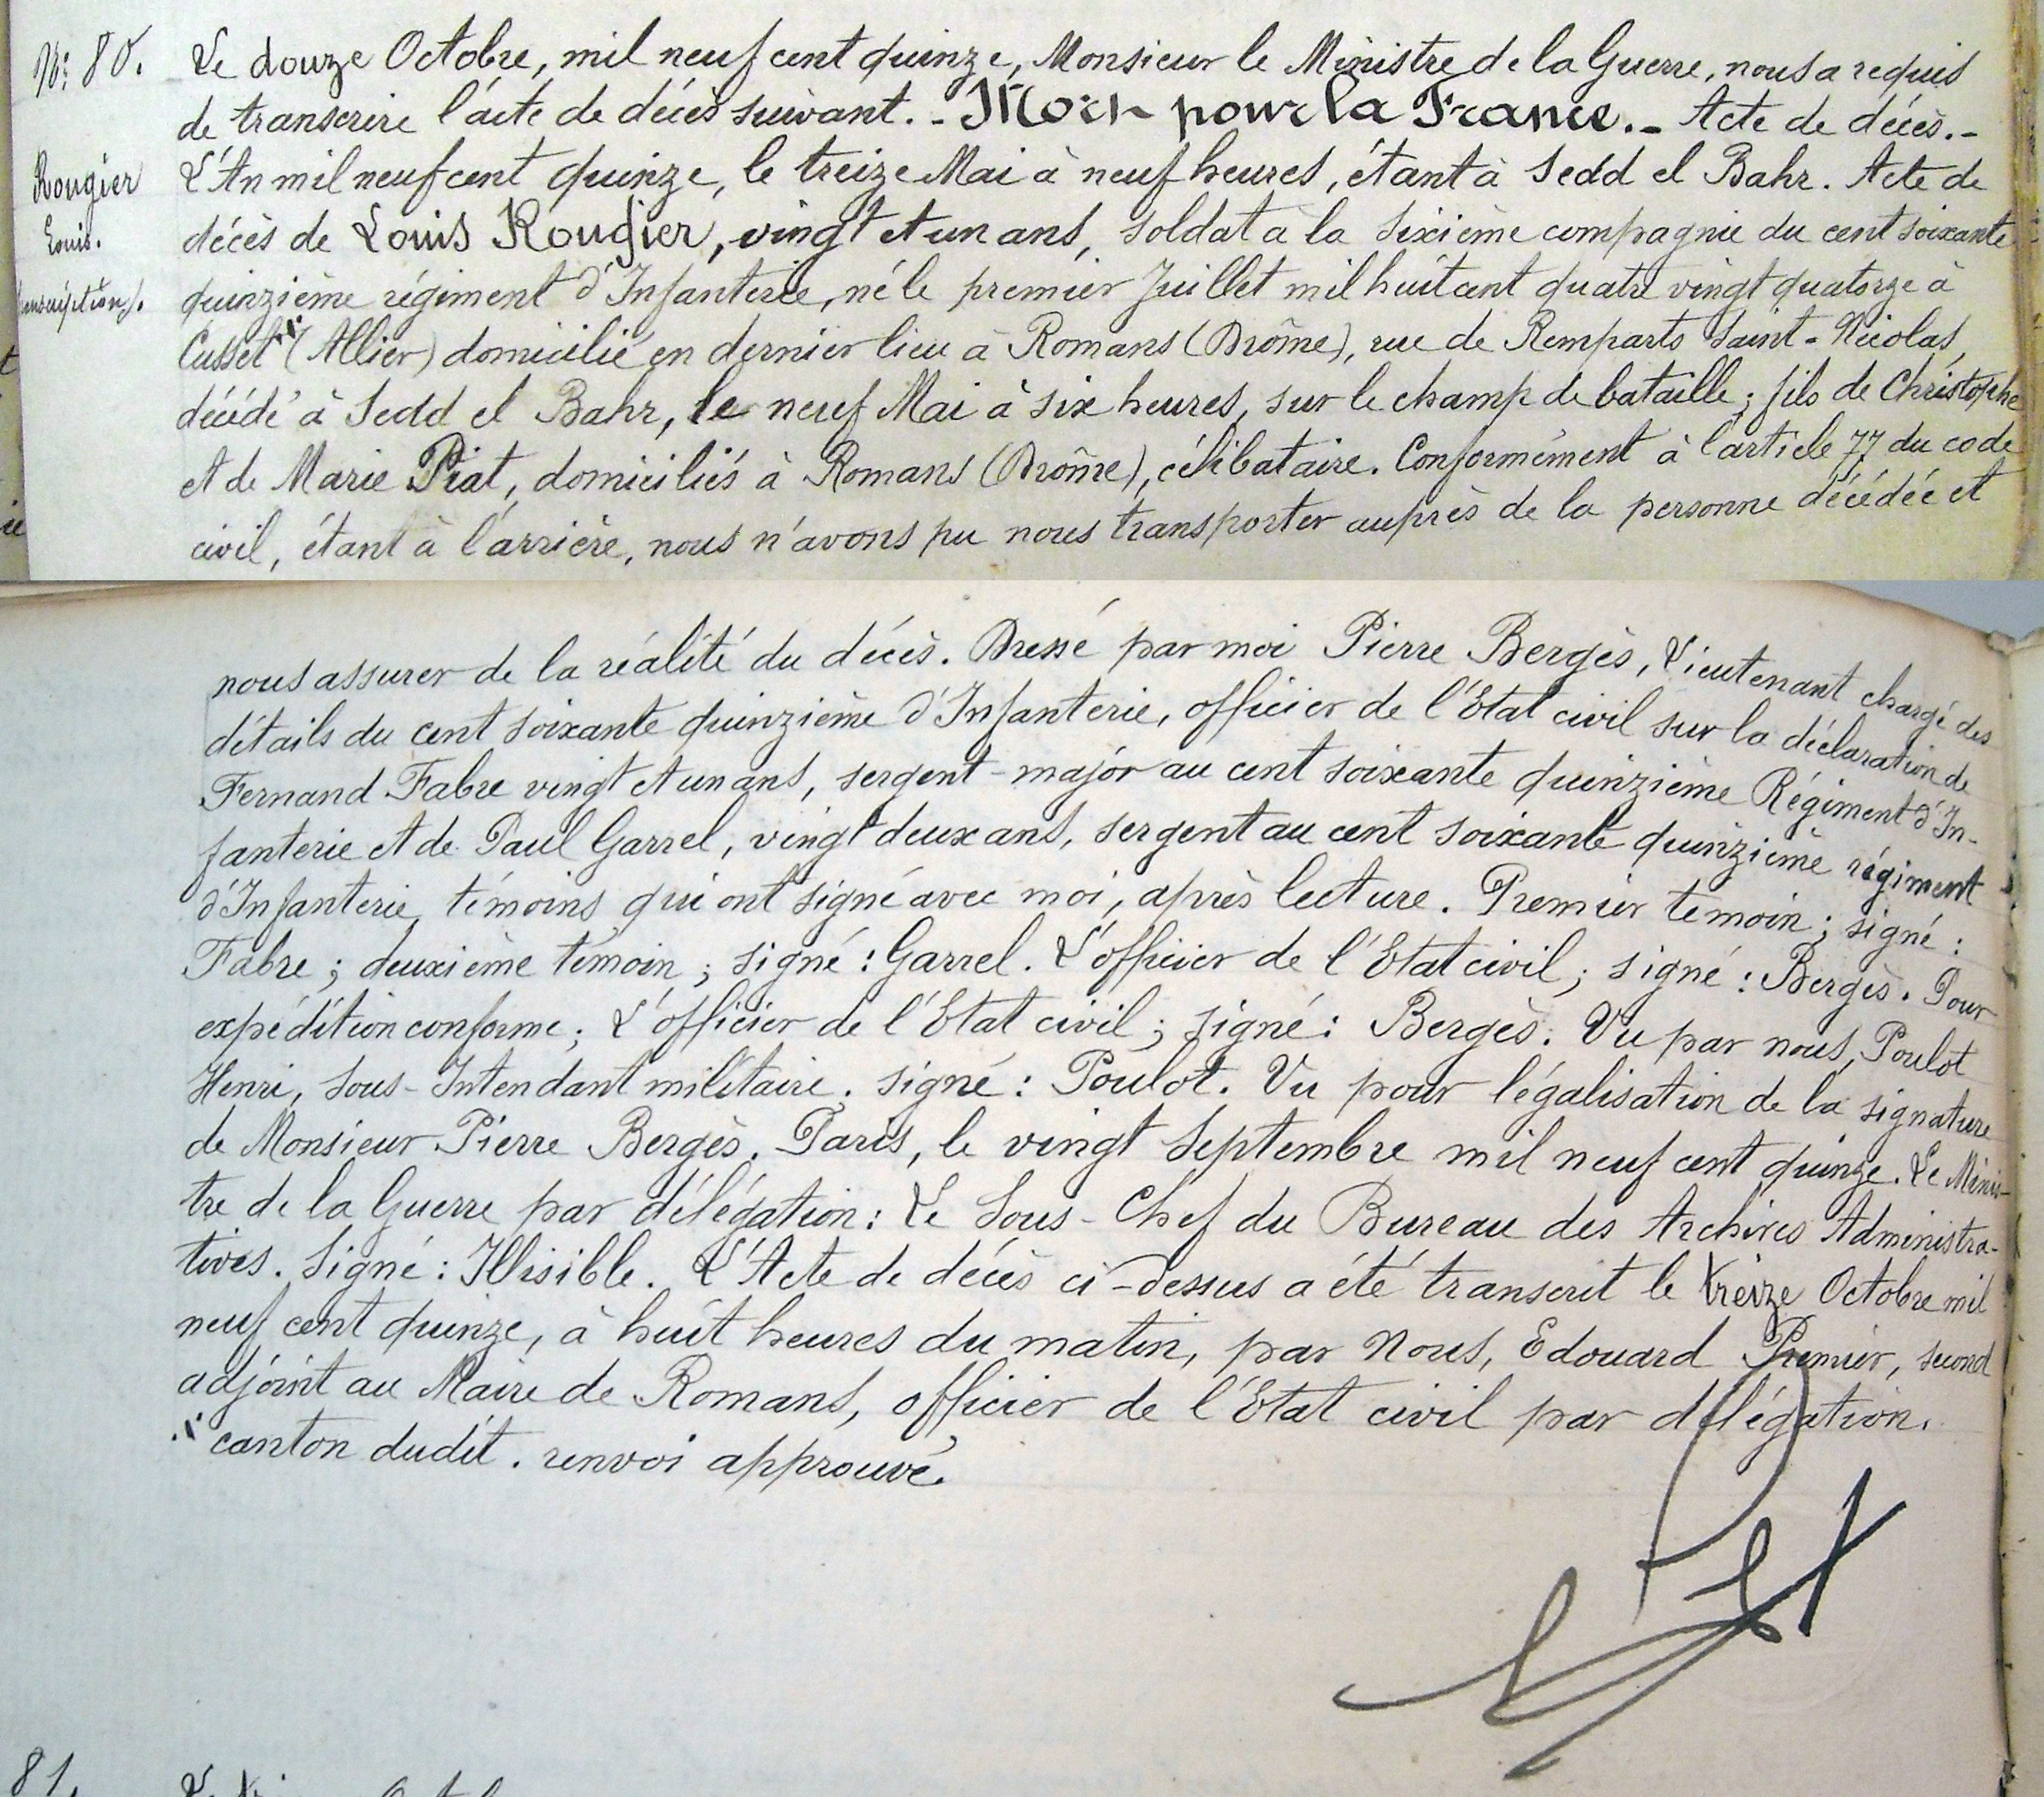 N° 80.
Le douze Octobre, mil neuf cent quinze, Monsieur le Ministre de la Guerre, nous a requis
de transcrire l'acte de décès suivant. - Mort pour la France. - Acte de décès. -
Rougier
Louis.
L'An mil neuf cent quinze, le treize Mai à neuf heures, étant à Sedd el Bahr. Acte de
décès de Louis Rougier, vingt et un ans, soldat à la sixième compagnie du cent soixante
quinzième régiment d'Infanterie, né le premier Juillet mil huit cent quatre vingt quatorze à
Cusset x (Allier) domicilié en dernier lieu à Romans (Drôme), rue de Remparts Saint-Nicolas,
décédé à Sedd el Bahr, le neuf Mai à six heures, sur le champ de bataille; fils de Christophe
et de Marie Piat, domiciliés à Romans (Drôme), célibataire. Conformément à l'article 77 du code
civil, étant à l'arrière, nous n'avons pu nous transporter auprès de la personne décédée et
nous assurer de la réalité du décès. Dressé par moi Pierre Bergès, Lieutenant chargé des
détails du cent soixante quinzième d'Infanterie, officier de l'Etat civil sur la déclaration de
Fernand Fabre vingt et un ans, sergent-major au cent soixante quinzième Régiment d'In-
fanterie et de Paul Garrel, vingt deux ans, sergent au cent soixante quinzième régiment
d'Infanterie, témoins qui ont signé avec moi, après lecture. Premier témoin; signé :
Fabre ; deuxième témoin ; signé : Garrel. L'officier de l'Etat civil ; signé : Bergès. Pour
expédition conforme ; L'officier de l'Etat civil ; signé : Bergès. Vu par nous, Poulot
Henri, Sous-Intendant militaire. signé : Poulot. Vu pour légalisation de la signature
de Monsieur Pierre Bergès. Paris, le vingt Septembre mil neuf cent quinze. Le Minis-
tre de la Guerre par délégation : Le Sous-Chef du Bureau des Archives Administra-
tives. Signé : Illisible. L'Acte de décès ci-dessus a été transcrit le treize Octobre mil
neuf cent quinze, à huit heures du matin, par Nous, Edouard Premier, second
adjoint au Maire de Romans, officier de l'Etat civil par délégation.
x canton dudit. renvoi approuvé.
81.